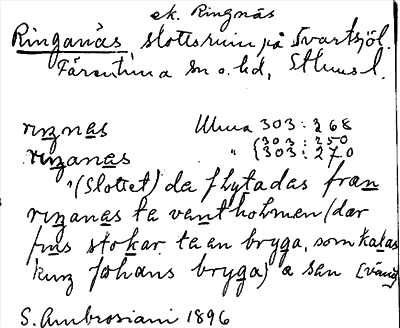 ek. Ringnäs
Ringanäs, slottsruin på Svartsjöl.
Färentuna sn o. hd,
rıŋnas Uhma 303: 268
(303: 250
rıŋanas " (303: 270
"(Slottet) da flytadas fran
rıŋanas ta vantholmen (dar
fins stokar ta an bryga, som kalas
kuŋ johans bryga) a san
S. Ambrosiani 1896